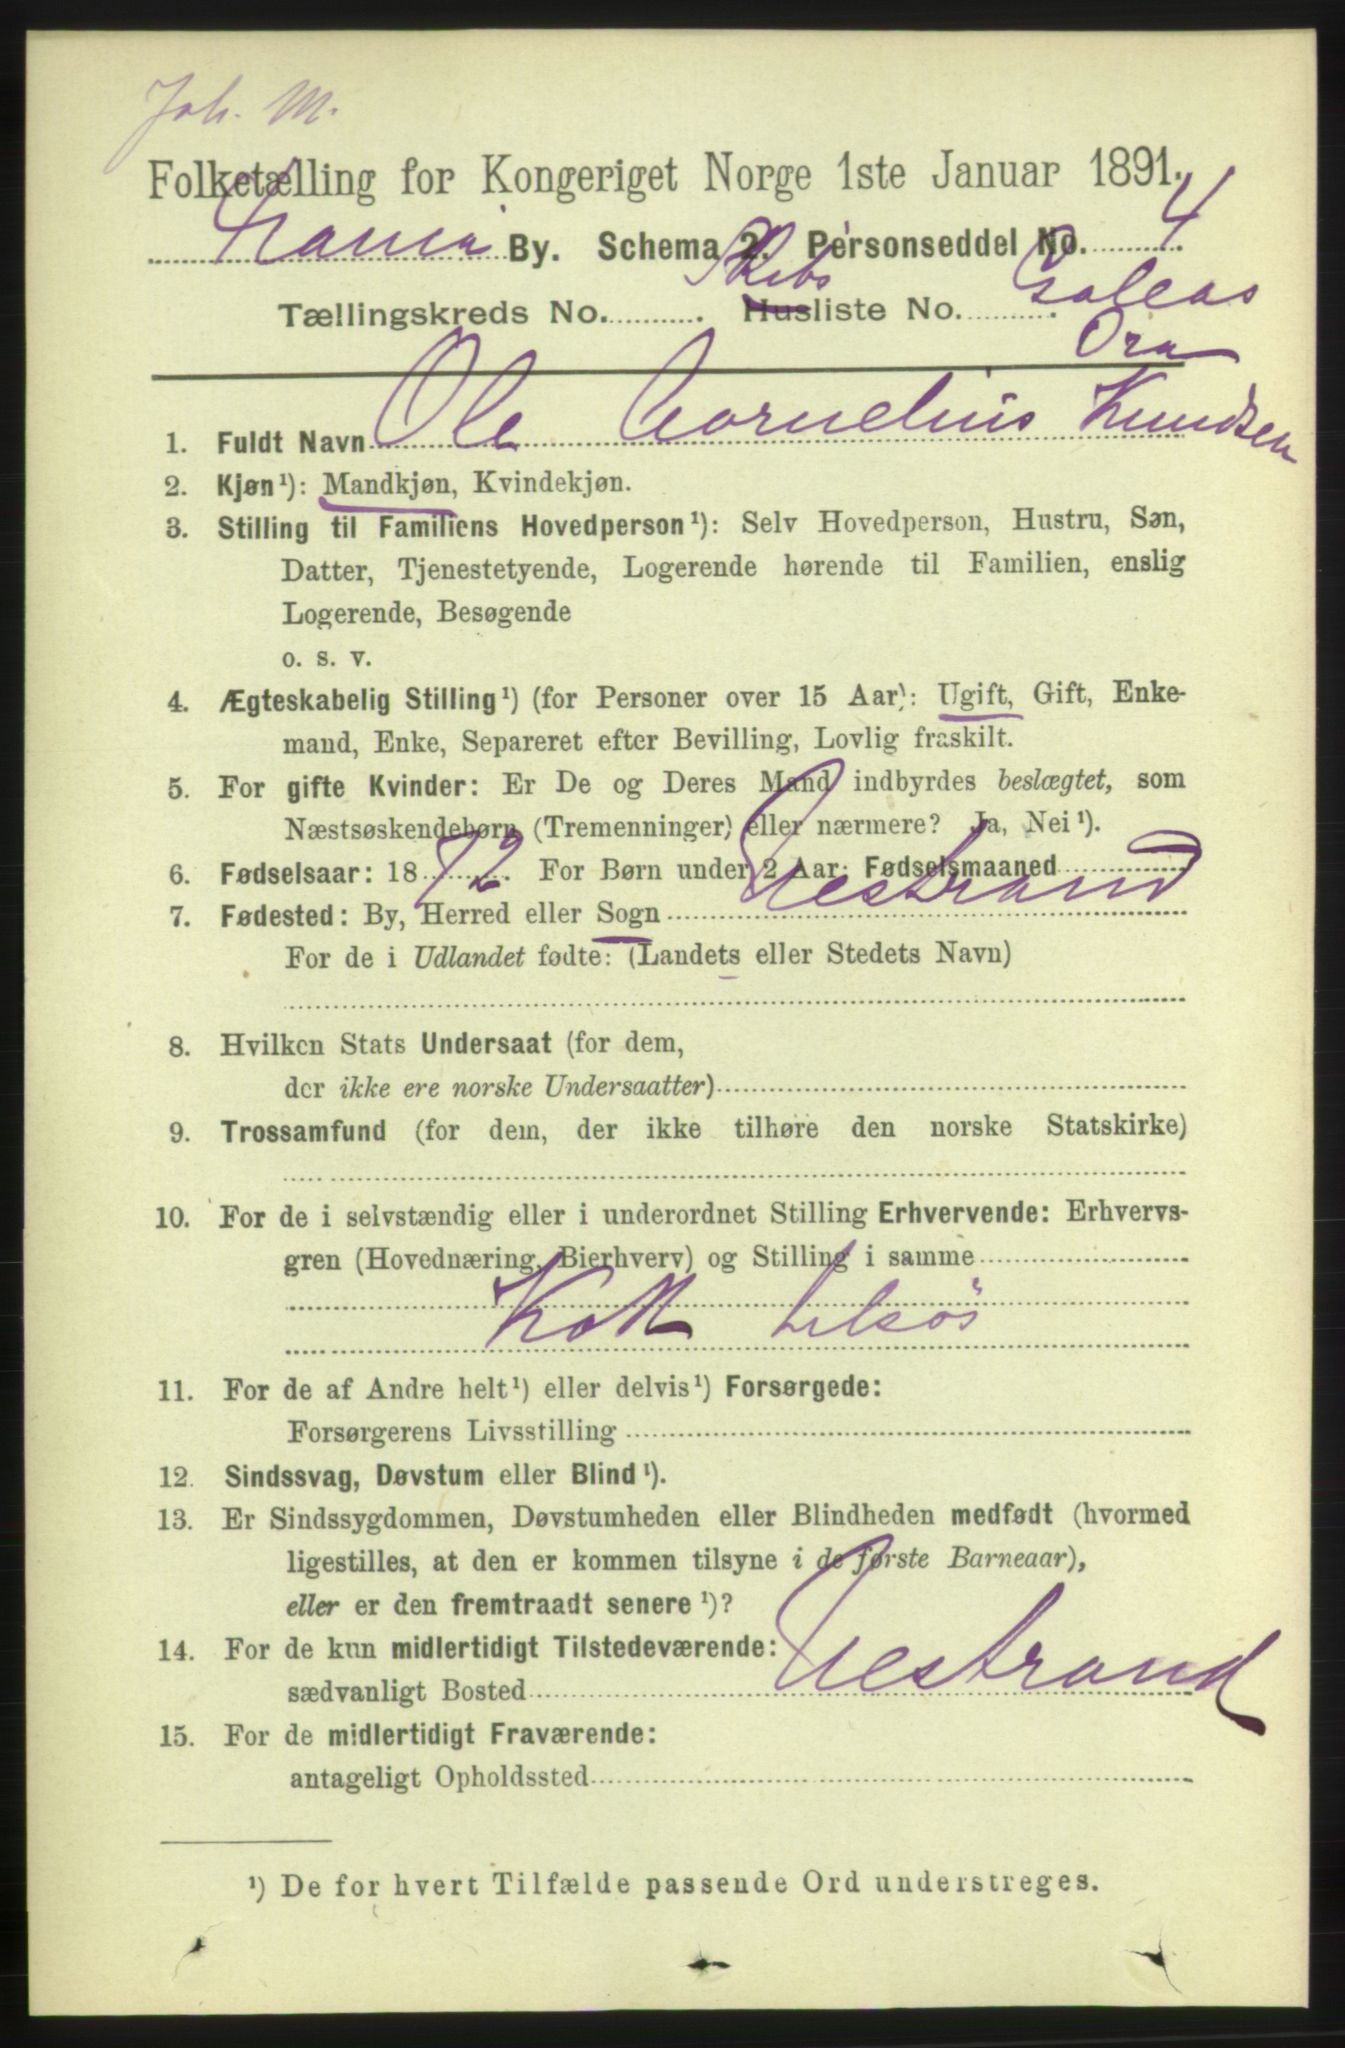 Joh. M.
Folketælling for Kongeriget Norge 1ste Januar 1891.
By. Schema 2. Personseddel No. 4
Tællingskreds No. Skibs Husliste No. Galeas
1. Fuldt Navn Ole Cornelius Knudsen
2. Kjøn ¹): Mandkjøn, Kvindekjøn.
3. Stilling til Familiens Hovedperson ¹): Selv Hovedperson, Hustru, Søn,
Datter, Tjenestetyende, Logerende hørende til Familien, enslig
Logerende, Besøgende
o. s. v.
4. Ægteskabelig Stilling ¹) (for Personer over 15 Aar): Ugift, Gift, Enke-
mand, Enke, Separeret efter Bevilling, Lovlig fraskilt.
5. For gifte Kvinder: Er De og Deres Mand indbyrdes beslægtet, som
Næstsøskendebørn (Tremenninger) eller nærmere? Ja, Nei ¹).
6. Fødselsaar: 18 72. For Børn under 2 Aar: Fødselsmaaned
7. Fødested: By, Herred eller Sogn Nestrand
For de i Udlandet fødte: (Landets eller Stedets Navn)
8. Hvilken Stats Undersaat (for dem,
der ikke ere norske Undersaatter)
9. Trossamfund (for dem, der ikke tilhøre den norske Statskirke)
10. For de i selvstændig eller i underordnet Stilling Erhvervende: Erhvervs-
gren (Hovednæring, Bierhverv) og Stilling i samme
Kok tilsøs
11. For de af Andre helt ¹) eller delvis ¹) Forsørgede:
Forsørgerens Livsstilling
12. Sindssvag, Døvstum eller Blind ¹).
13. Er Sindssygdommen, Døvstumheden eller Blindheden medfødt (hvormed
ligestilles, at den er kommen tilsyne i de første Barneaar),
eller er den fremtraadt senere ¹)?
14. For de kun midlertidigt Tilstedeværende:
sædvanligt Bosted Nestrand
15. For de midlertidigt Fraværende:
antageligt Opholdssted
¹) De for hvert Tilfælde passende Ord understreges.